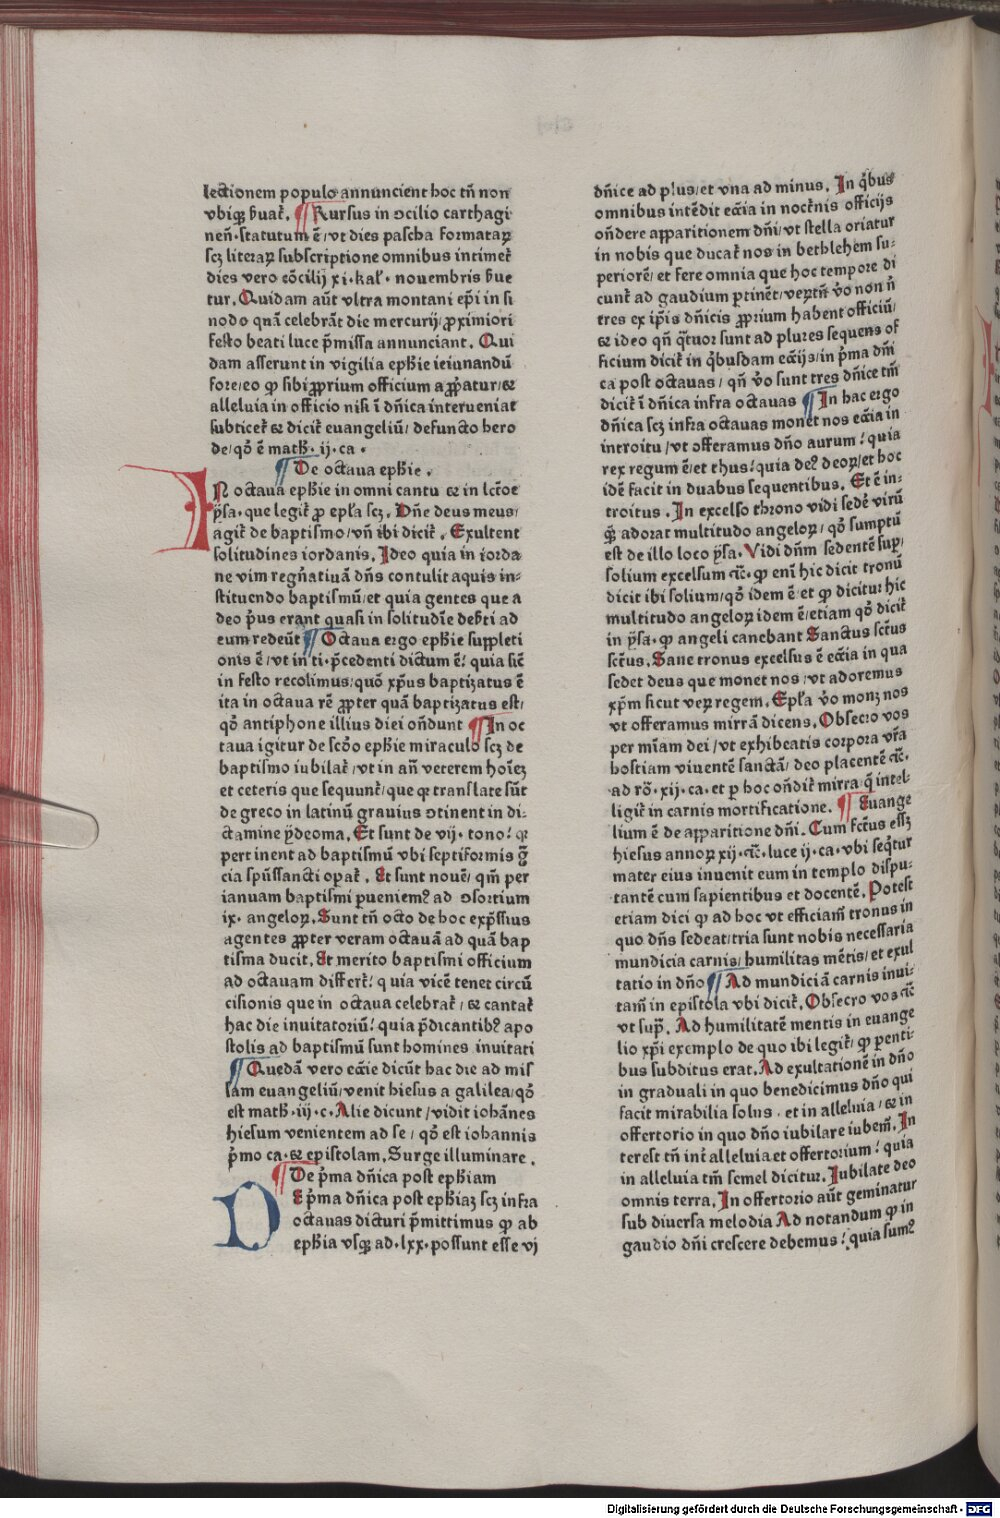 lectionem populo annuncient hoc tñ non
vbiqꝫ ẜuat᷑. ¶ Rursus in ↄcilio carthagi
neñ·statutum ē/vt dies pascha formataꝝ
scꝫ literaꝝ subscriptione omnibus intimet᷑
dies vero cōcilij xi·kał· nouembris ẜue
tur. Quidam aūt vltra montani ep̄i in si
nodo quā celebrāt die mercurij/ꝓximiori
festo beati luce p̄missa annunciant. Qui
dam asserunt in vigilia epħie ieiunandū
fore/eo ꝙ sibi ꝓprium officium a ꝓp̄atur/et
alleluia in officio nisi ī dñica interueniat
subticet᷑ et dicit᷑ euangeliū/defuncto hero
de/qð ē matħ· ij·ca·
¶ De octaua epħie.
IN octaua epħie in omni cantu et in lc̄toe
ip̄sa·que legit᷑ ꝓ epła scꝫ. Dñe deus meus/
agit᷑ de baptismo/vñ ibi dicit᷑. Exultent
solitudines iordanis. Ideo quia in iorda
ne vim regñatiuā dñs contulit aquis in-
stituendo baptismū/et quia gentes que a
deo p̄us erant quasi in solitudīe deb̄ti ad
eum redeūt ¶ Octaua ergo epħie suppleti
onis ē/vt in ti·p̄cedenti dictum ē: quia sic̄
in festo recolimus/quō xp̄us baptizatus ē
ita in octaua rē ꝓpter quā baptizatus est/
qð antiphone illius diei oñdunt ¶ In oc
taua igitur de scðo epħie miraculo scꝫ de
baptismo iubilat᷑/vt in añ veterem hoīeꝫ
et ceteris que sequunt᷑/que qꝛ translate sūt
de greco in latinū grauius ↄtinent in di-
ctamine ẏdeoma. Et sunt de vij· tono: qꝛ
pertinent ad baptismū vbi septiformis g̃
cia spūssancti opat᷑. Et sunt nouē/ qm̄ per
ianuam baptismi pueniem⁹ ad ↄsortium
ix· angeloꝝ. Sunt tñ octo de hoc exp̄ssius
agentes ꝓpter veram octauā ad quā bap
tisma ducit. Et merito baptismi officium
ad octauam differt᷑: quia vicē tenet circū
cisionis que in octaua celebrat᷑/et cantat᷑
hac die inuitatoriū: quia p̄dicantib⁹ apo
stolis ad baptismū sunt homines inuitati
¶ Quedā vero ecc̄ie dicūt hac die ad mis
sam euangeliū/venit hiesus a galilea/qð
est matħ·iij·c·Alie dicunt/vidit iohānes
hiesum venientem ad se/ qð est iohannis
p̄mo ca·et epistolam. Surge illuminare.
¶ De p̄ma dñica post epħiam
DE p̄ma dñica post epħiaꝫ scꝫ infra
octauas dicturi p̄mittimus ꝙ ab
epħia vsqꝫ ad·lxx·possunt esse vj
dñice ad plus/et vna ad minus. In q̇bus
omnibus intēdit ecc̄ia in noct᷑nis officijs
oñdere apparitionem dñi/vt stella oriatur
in nobis que ducat᷑ nos in bethlehem su-
periorē/et fere omnia que hoc tempore di
cunt᷑ ad gaudium ꝑtinēt/veꝝtñ v̄o non ñ
tres ex ip̄is dñicis ꝓprium habent officiū/
et ideo qñ q̄tuor sunt ad plures sequens of
ficium dicit᷑ in q̇busdam ecc̄ijs/in p̄ma dñi
ca post octauas/ qñ v̄o sunt tres dñice tm̄
dicit᷑ ī dñica infra octauas ¶ In hac ergo
dñica scꝫ infra octauas monet nos ecc̄ia in
introitu/vt offeramus dño aurum: quia
rex regum ē/et thus: quia de⁹ deoꝝ/et hoc
idē facit in duabus sequentibus. Et ē in-
troitus. In excelso throno vidi sedē virū
q̄ꝫ adorat multitudo angeloꝝ/ qð sumptū
est de illo loco ip̄sa. Vidi dñm sedentē sup/
solium excelsum ⁊c̄· ꝙ eni hic dicit tronū
dicit ibi solium/qð idem ē/et ꝙ dicitur hic
multitudo angeloꝝ idem ē/etiam qð dicit᷑
in ip̄sa·ꝙ angeli canebant Sanctus sc̄tus
sc̄tus. Sane tronus excelsus ē ecc̄ia in qua
sedet deus que monet nos/vt adoremus
xp̄m sicut veꝝ regem. Epła v̄o monꝫ nos
vt offeramus mirrā dicens. Obsecro vos
per mīam dei/vt exhibeatis corpora vr̄a
hostiam viuentē sanctā/ deo placentē ⁊c̄·
ad rō· xij·ca·et p hoc oñdit᷑ mirra q̄ intel-
ligit᷑ in carnis mortificatione. ¶ Euange
lium ē de apparitione dñi. Cum fc̄tus essꝫ
hiesus annoꝝ xij·⁊c̄·luce ij·ca·vbi seq̇tur
mater eius inuenit eum in templo dispu-
tantē cum sapientibus et docentē. Potest
etiam dici ꝙ ad hoc vt efficiam᷑ tronus in
quo dñs sedeat/tria sunt nobis necessaria
mundicia carnis/humilitas mētis/et exul
tatio in dño ¶ Ad mundiciā carnis inui-
tam᷑ in epistola vbi dicit᷑. Obsecro vos ⁊c̄
vt sup̄. Ad humilitatē mentis in euange
lio xp̄i exemplo de quo ibi legit᷑/ ꝙ parenti-
bus subditus erat. Ad exultationē in dño
in graduali in quo benedicimus dño qui
facit mirabilia solus· et in alleluia/et in
offertorio in quo dño iubilare iubem᷑. In
terest tñ int᷑ alleluia et offertorium: quia
in alleluia tm̄ semel dicitur. Iubilate deo
omnis terra. In offertorio aūt geminatur
sub diuersa melodia Ad notandum ꝙ in
gaudio dñi crescere debemus: quia sum⁹
Digitalisierung gefördert durch die Deutsche Forschungsgemeinschaft - DFG